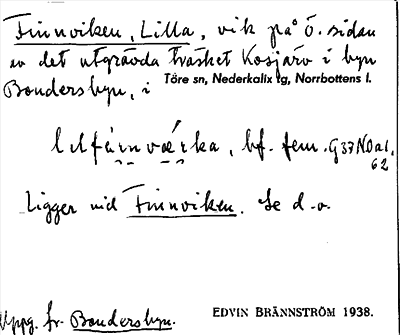 Finnviken, Lilla, vik på ö. sidan
av det utgrävda träsket Kosjärv i byn
Töre sn, Nederkalix tg, Norrbottens l.
Bondersbyn, i
lɩlfɩnværka, bf. fem. G37NOa1.
62
Ligger vid Finnviken. Se d.o.
Uppg. fr. Bondersbyn.
EDVIN BRÄNNSTRÖM 1938.